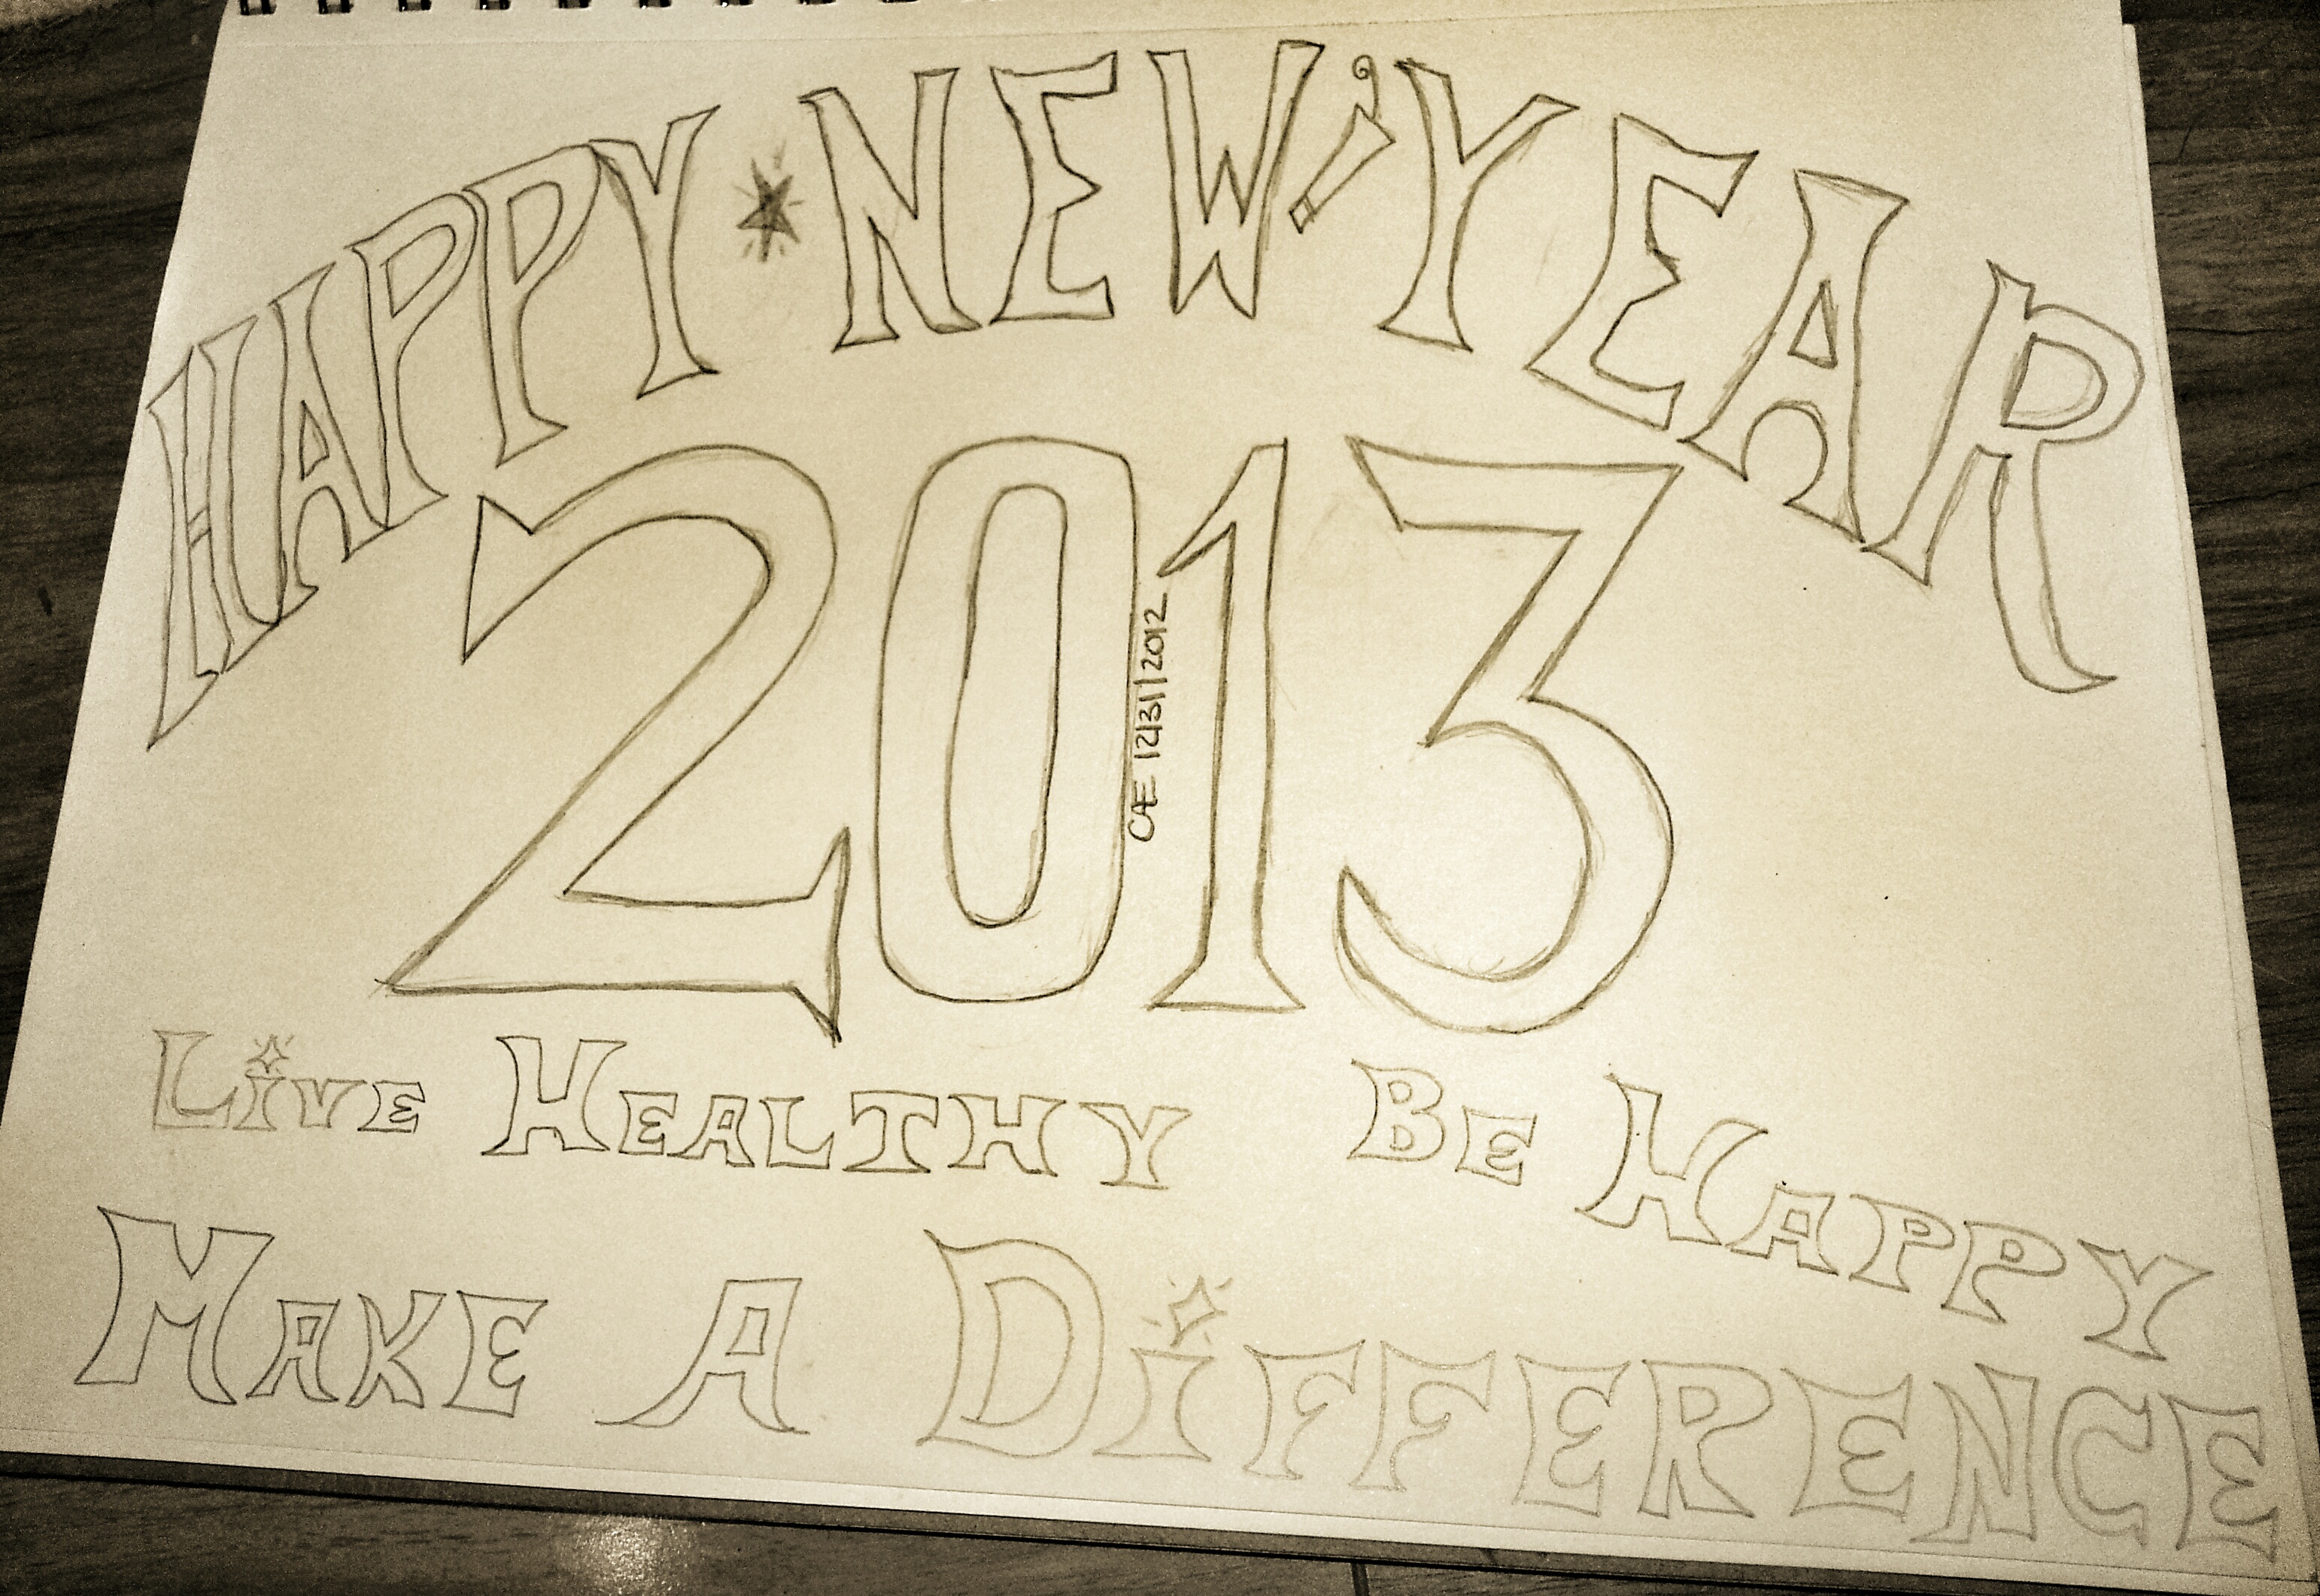 HAPPY NEW YEAR
2013
CAE 12/31/2012
LiVE HEALTHY BE HAPPY
MAKE A DiFFERENCE